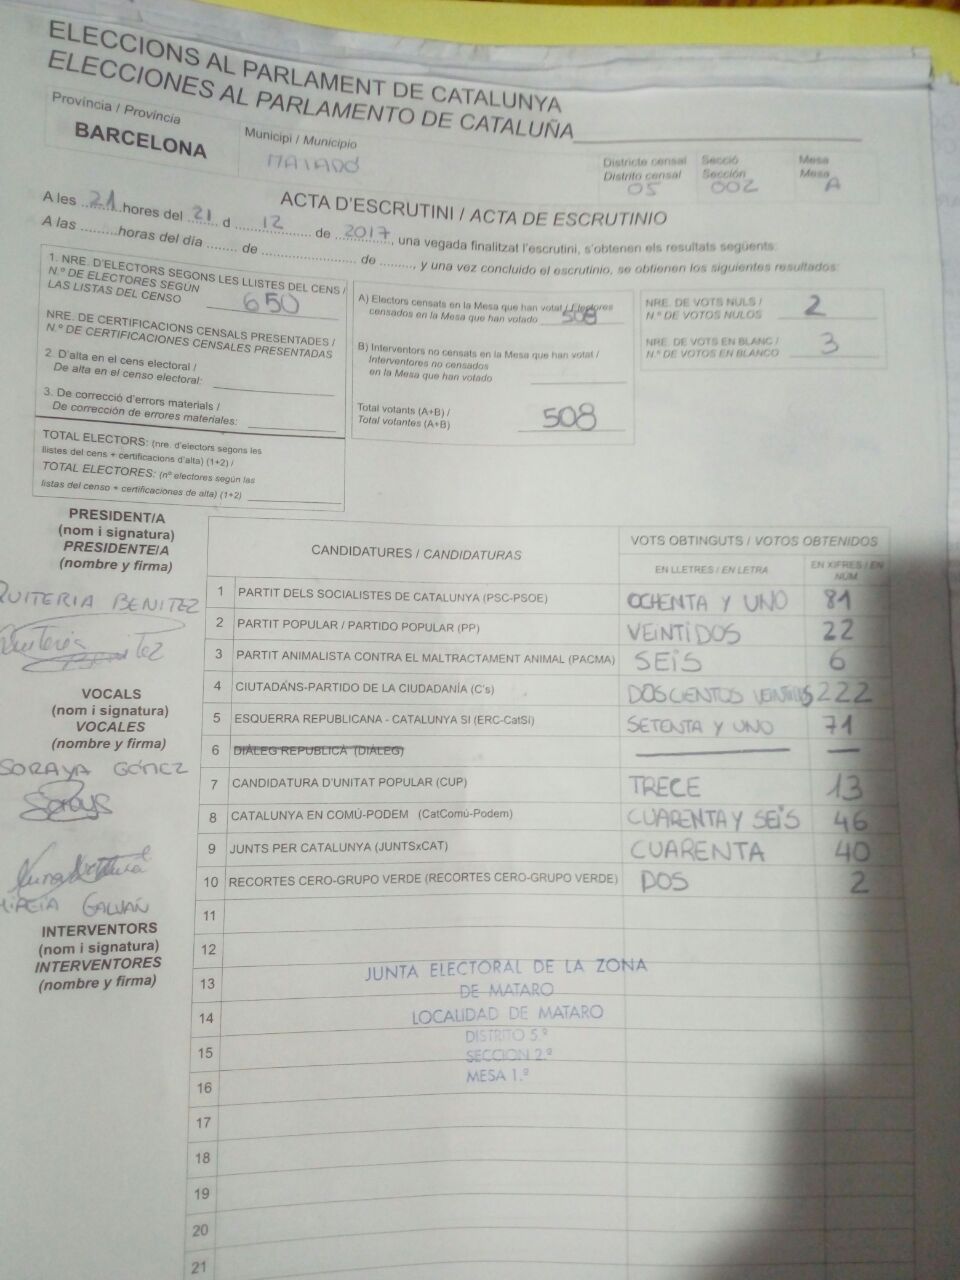 ELECCIONS AL PARLAMENT DE CATALUNYA
ELECCIONES AL PARLAMENTO DE CATALUÑA
Província / Provincia
BARCELONA
Municipi / Municipio
MATARÓ
Districte censal
Distrito censal
05
Secció
Sección
002
Mesa
Mesa
A
ACTA D'ESCRUTINI / ACTA DE ESCRUTINIO
A les 21 hores del 21 d 12 de 2017, una vegada finalitzat l'escrutini, s'obtenen els resultats següents:
A las ........ horas del día ........ de ........ de ........, y una vez concluido el escrutinio, se obtienen los siguientes resultados:
1. NRE. D'ELECTORS SEGONS LES LLISTES DEL CENS /
N.º DE ELECTORES SEGÚN
LAS LISTAS DEL CENSO 650
NRE. DE CERTIFICACIONS CENSALS PRESENTADES /
N.º DE CERTIFICACIONES CENSALES PRESENTADAS
2. D'alta en el cens electoral /
De alta en el censo electoral:
3. De correcció d'errors materials /
De corrección de errores materiales:
TOTAL ELECTORS: (nre. d'electors segons les
llistes del cens + certificacions d'alta) (1+2) /
TOTAL ELECTORES: (nº electores según las
listas del censo + certificaciones de alta) (1+2)
A) Electors censats en la Mesa que han votat / Electores
censados en la Mesa que han votado 508
B) Interventors no censats en la Mesa que han votat /
Interventores no censados
en la Mesa que han votado
Total votants (A+B) /
Total votantes (A+B) 508
NRE. DE VOTS NULS /
N.º DE VOTOS NULOS 2
NRE. DE VOTS EN BLANC /
N.º DE VOTOS EN BLANCO 3
PRESIDENT/A
(nom i signatura)
PRESIDENTE/A
(nombre y firma)
QUITERIA BENITEZ
Quiteria Benitez
VOCALS
(nom i signatura)
VOCALES
(nombre y firma)
SORAYA GÓMEZ
Soraya
MIREIA GALVAÑ
INTERVENTORS
(nom i signatura)
INTERVENTORES
(nombre y firma)
CANDIDATURES / CANDIDATURAS
VOTS OBTINGUTS / VOTOS OBTENIDOS
EN LLETRES / EN LETRA
EN XIFRES / EN
NÚM
1 PARTIT DELS SOCIALISTES DE CATALUNYA (PSC-PSOE) OCHENTA Y UNO 81
2 PARTIT POPULAR / PARTIDO POPULAR (PP) VEINTIDOS 22
3 PARTIT ANIMALISTA CONTRA EL MALTRACTAMENT ANIMAL (PACMA) SEIS 6
4 CIUTADANS-PARTIDO DE LA CIUDADANÍA (C's) DOSCIENTOS 222
5 ESQUERRA REPUBLICANA - CATALUNYA SÍ (ERC-CatSí) SETENTA Y UNO 71
6 DIÀLEG REPUBLICÀ (DIÀLEG)
7 CANDIDATURA D'UNITAT POPULAR (CUP) TRECE 13
8 CATALUNYA EN COMÚ-PODEM (CatComú-Podem) CUARENTA Y SEIS 46
9 JUNTS PER CATALUNYA (JUNTSxCAT) CUARENTA 40
10 RECORTES CERO-GRUPO VERDE (RECORTES CERO-GRUPO VERDE) DOS 2
11
12
13
14
15
16
17
18
19
20
21
JUNTA ELECTORAL DE LA ZONA
DE MATARO
LOCALIDAD DE MATARO
DISTRITO 5.º
SECCION 2.ª
MESA 1.ª